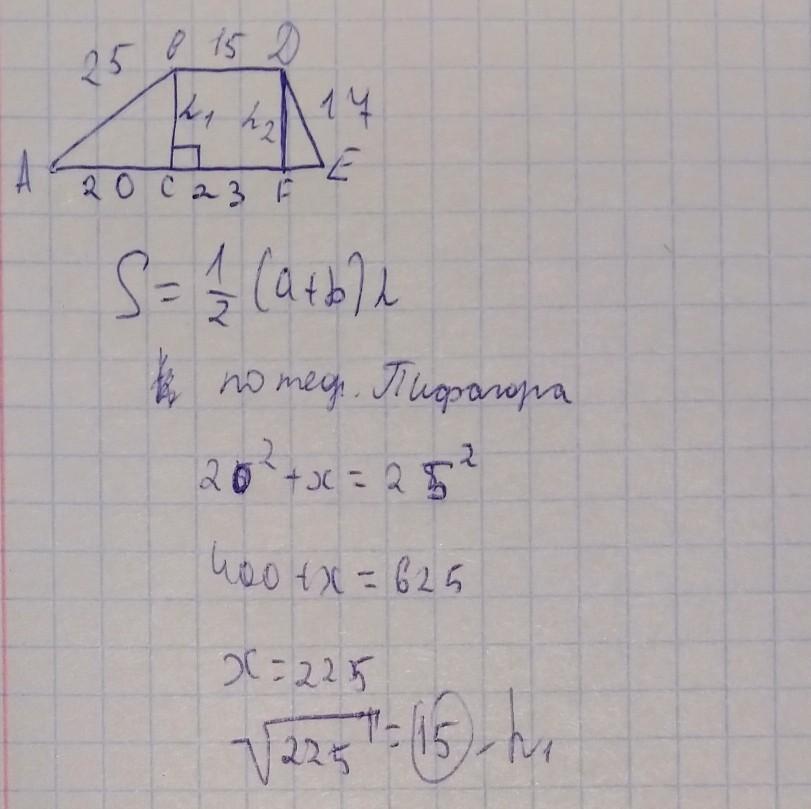 25 B 15 D
h₁ h₂ 17
A 20 C 23 F E
S = 1/2 (a+b)h
по теор. Пифагора
20² + x = 25²
400 + x = 625
x = 225
√225 = 15 - h₁